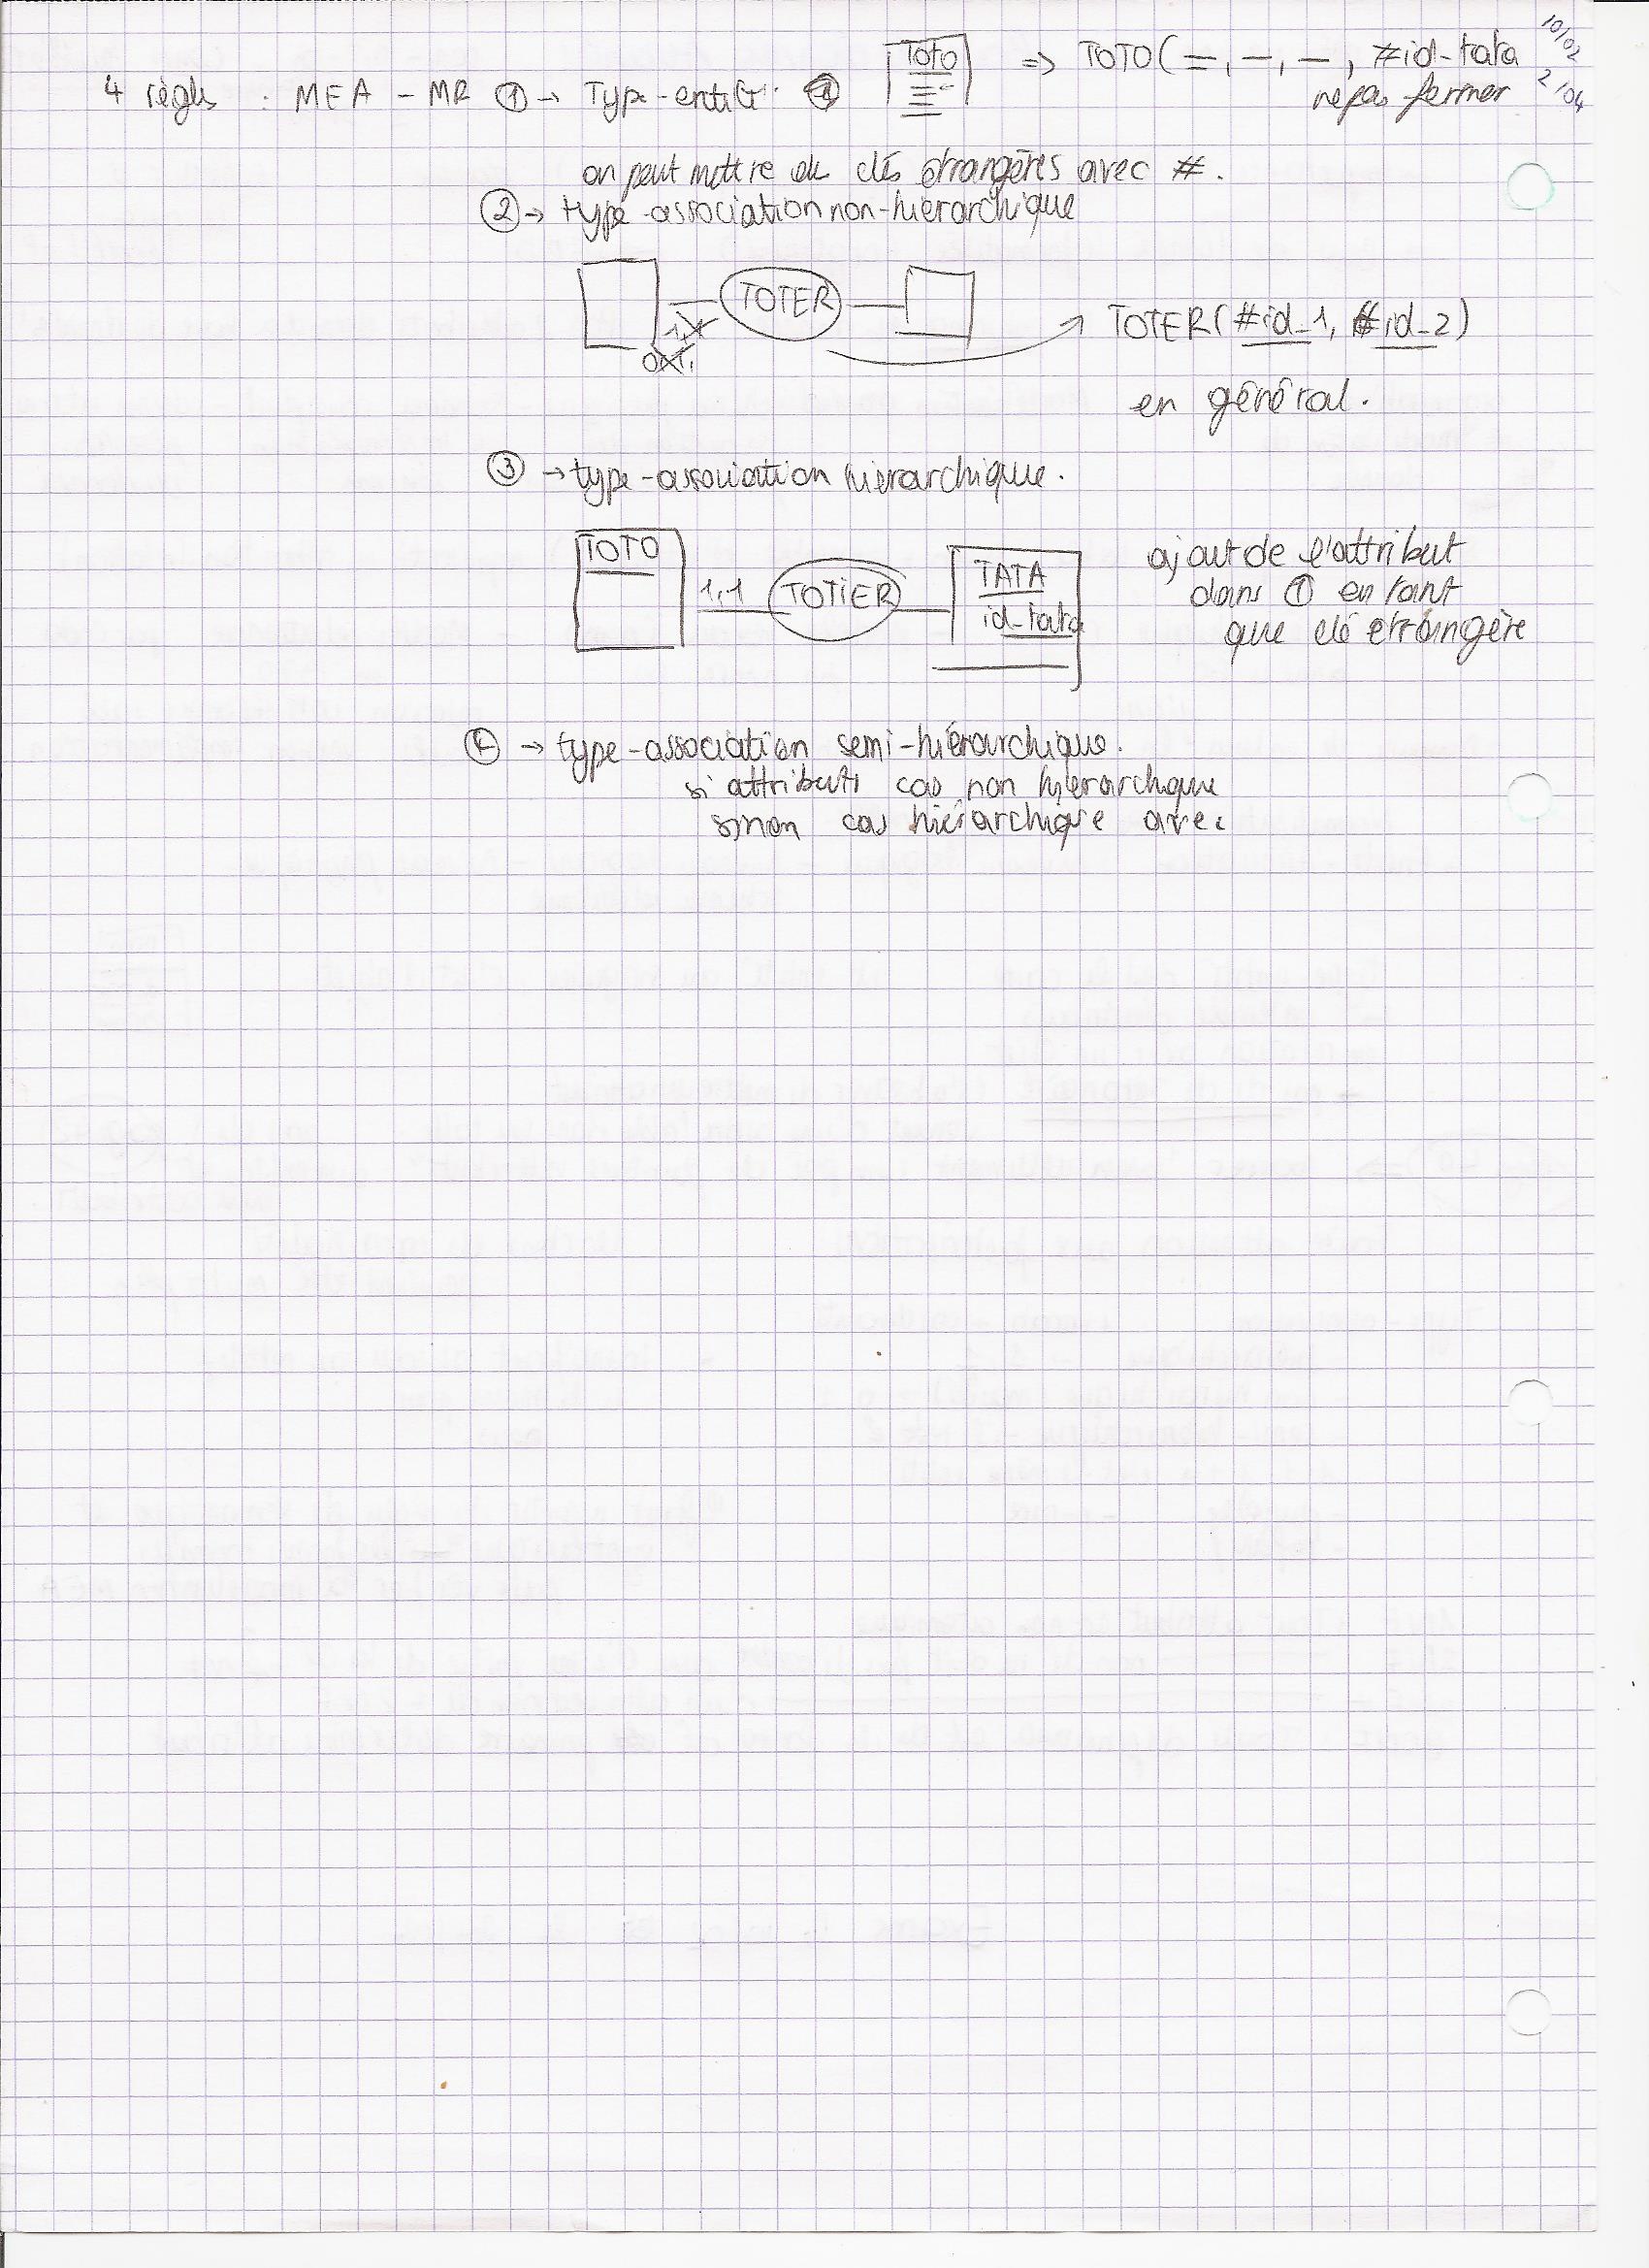 10/02
2/04
4 règles : MEA - MR ① → Type-entité. Toto ⇒ TOTO( =, -, -, #id-tata
ne pas fermer
on peut mettre des clés étrangères avec #.
② → type-association non-hiérarchique
TOTER
TOTER(#id_1, #id_2)
en général.
③ → type-association hiérarchique.
TOTO 1,1 TOTIER TATA
id-tata
ajout de l'attribut
dans ① en tant
que clé étrangère
④ → type-association semi-hiérarchique.
si attributs cas non hiérarchique
sinon cas hiérarchique avec